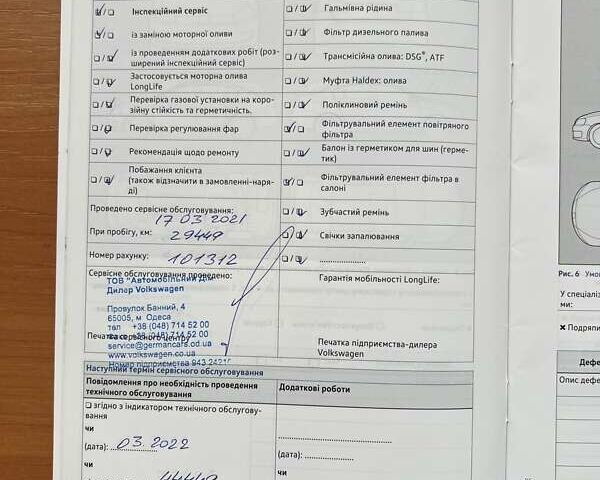 ☑/☐ Інспекційний сервіс
☑/☐ із заміною моторної оливи
☐/☑ із проведенням додаткових робіт (роз-
ширений інспекційний сервіс)
☐/☑ Застосовується моторна олива
LongLife
☐/☑ Перевірка газової установки на коро-
зійну стійкість та герметичність.
☐/☑ Перевірка регулювання фар
☐/☑ Рекомендація щодо ремонту
☐/☑ Побажання клієнта
(також відзначити в замовленні-наря-
ді)
Проведено сервісне обслуговування:
17 03 2021
При пробігу, км: 29449
Номер рахунку: 101312
Сервісне обслуговування проведено:
ТОВ "Автомобільний Дім"
Дилер Volkswagen
Провулок Банний, 4
65005, м Одеса
тел +38 (048) 714 52 00
+38 (048) 714 52 00
Печатка сервісного центру
service@germancars.od.ua
www.volkswagen.co.ua
Номер підприємства 943 2421
☐/☑ Гальмівна рідина
☐/☑ Фільтр дизельного палива
☐/☑ Трансмісійна олива: DSG®, ATF
☐/☑ Муфта Haldex: олива
☐/☑ Поліклиновий ремінь
☑/☐ Фільтрувальний елемент повітряного
фільтра
☐/☑ Балон із герметиком для шин (герме-
тик)
☑/☐ Фільтрувальний елемент фільтра в
салоні
☐/☑ Зубчастий ремінь
☐/☑ Свічки запалювання
☐/☑ ....................
Гарантія мобільності LongLife:
Печатка підприємства-дилера
Volkswagen
Наступний термін сервісного обслуговування
Повідомлення про необхідність проведення
технічного обслуговування
☐ згідно з індикатором технічного обслугову-
вання
чи
(дата): 03.2022
чи
44449
Додаткові роботи
(дата):
чи
Рис. 6 Умо
У спеціаліз
ми:
✖ Подряпи
Дефе
Опис дефе